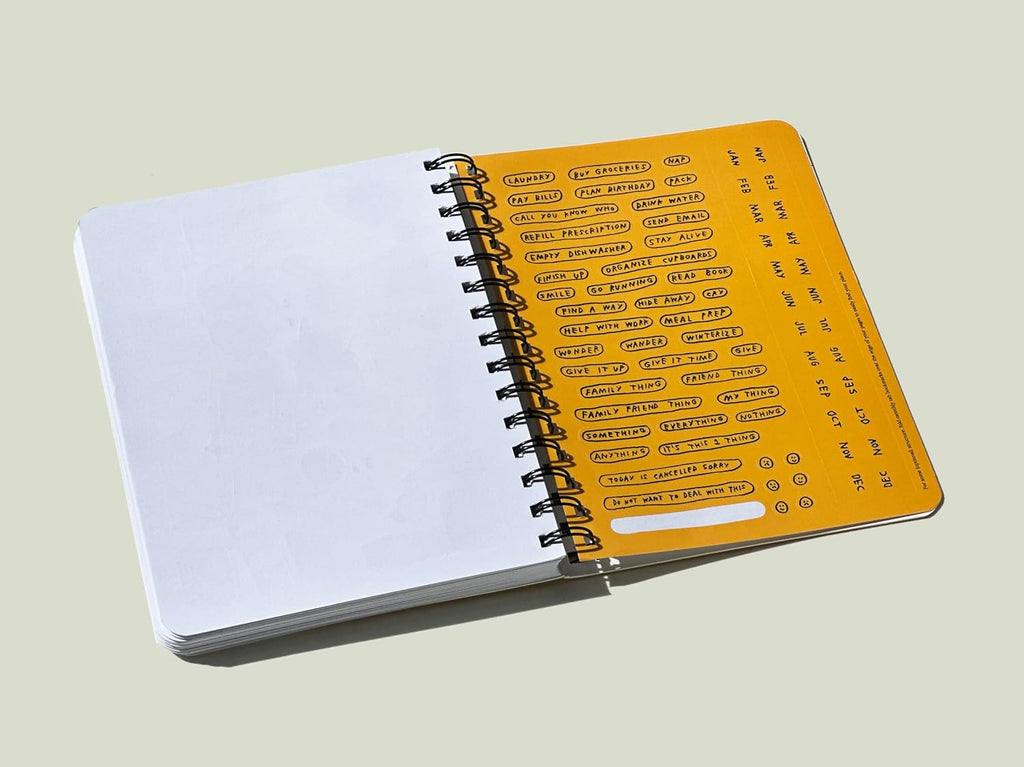 LAUNDRY BUY GROCERIES NAP
PAY BILLS PLAN BIRTHDAY PACK
CALL YOU KNOW WHO DRINK WATER
REFILL PRESCRIPTION SEND EMAIL
EMPTY DISHWASHER STAY ALIVE
FINISH UP ORGANIZE CUPBOARDS
SMILE GO RUNNING READ BOOK
FIND A WAY HIDE AWAY CRY
HELP WITH WORK MEAL PREP
WONDER WANDER WINTERIZE
GIVE IT UP GIVE IT TIME GIVE
FAMILY THING FRIEND THING
FAMILY FRIEND THING MY THING
SOMETHING EVERYTHING NOTHING
ANYTHING IT'S THIS 1 THING
TODAY IS CANCELLED SORRY
DO NOT WANT TO DEAL WITH THIS
JAN FEB MAR APR MAY JUN JUL AUG SEP OCT NOV DEC
JAN FEB MAR APR MAY JUN JUL AUG SEP OCT NOV DEC